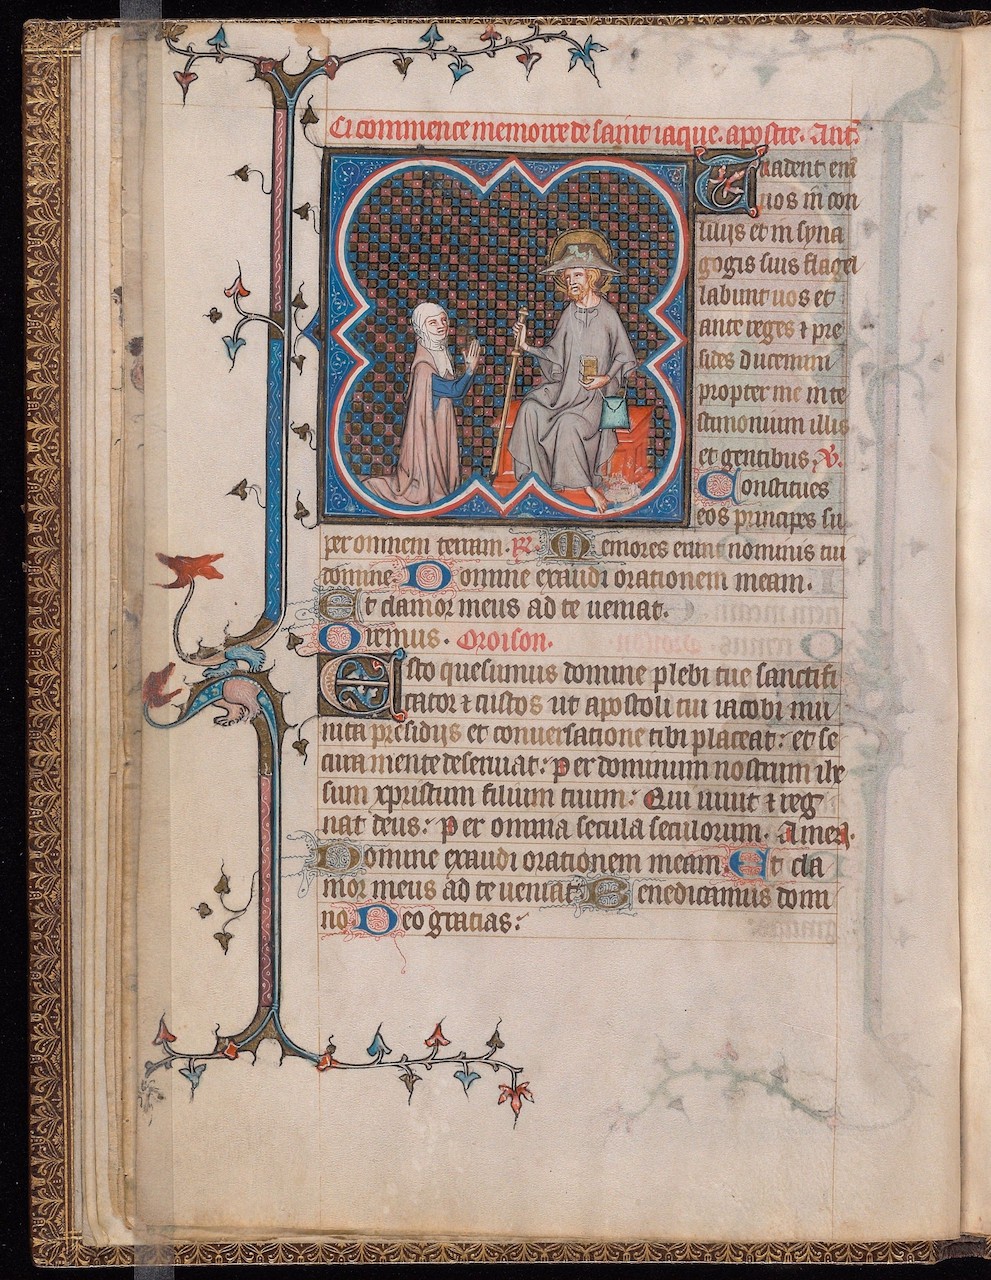 Ci commence memoire de saint iaque. apostre. Ant.
Tradent eni
uos in con
ciliis et in syna
gogis suis flagel
labunt uos et
ante reges ⁊ pre
sides ducemini
propter me in te
stimonium illis
et gentibus. V.
Constitues
eos principes su
per omnem terram. R. Memores erunt nominis tui
domine. Domine exaudi orationem meam.
Et clamor meus ad te ueniat.
Oremus. Oroison.
Esto quesumus domine plebi tue sanctifi
cator ⁊ custos ut apostoli tui iacobi mu
nita presidiis et conuersatione tibi placeat: et se
cura mente deseruat: Per dominum nostrum ihe
sum xpristum filium tuum: Qui uiuit ⁊ reg
nat deus: Per omnia secula seculorum. Amen.
Domine exaudi orationem meam. Et cla
mor meus ad te ueniat. Benedicamus domi
no. Deo gracias: